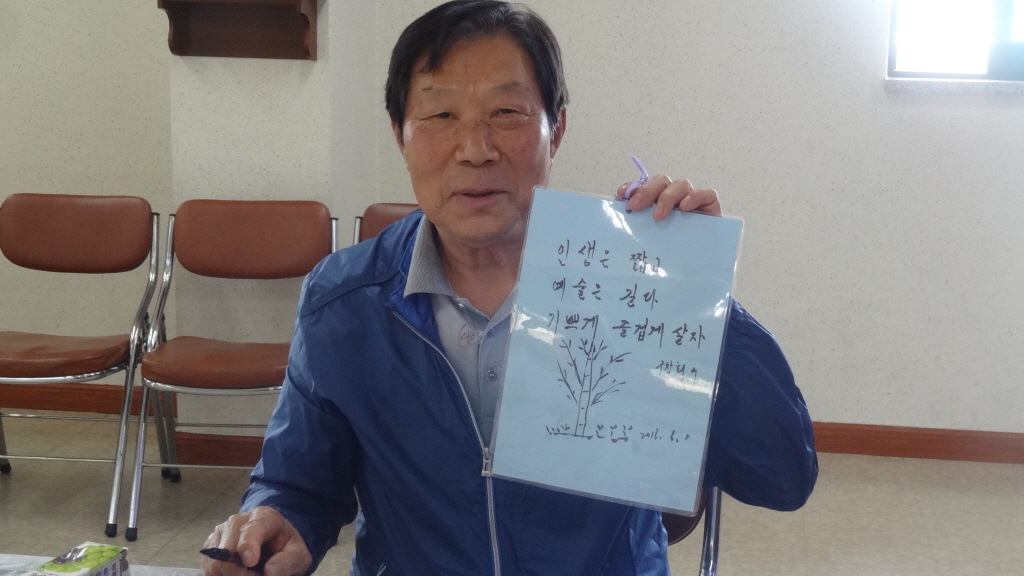 인생은 짧고
예술은 길다
기쁘게 즐겁게 살자